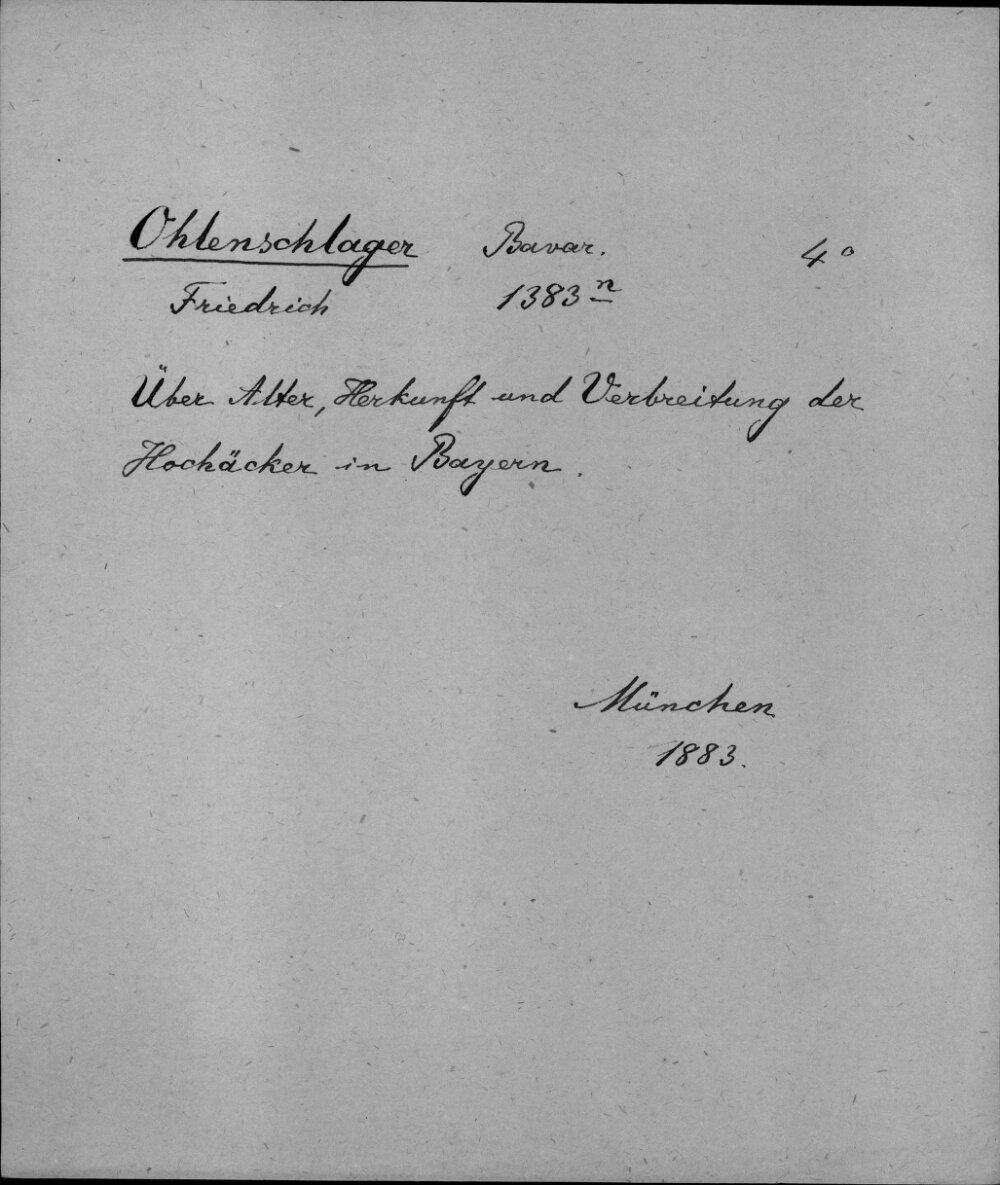 Ohlenschlager Bavar. 4°
Friedrich 1383 n
Über Alter, Herkunft und Verbreitung der
Hochäcker in Bayern.
München
1883.